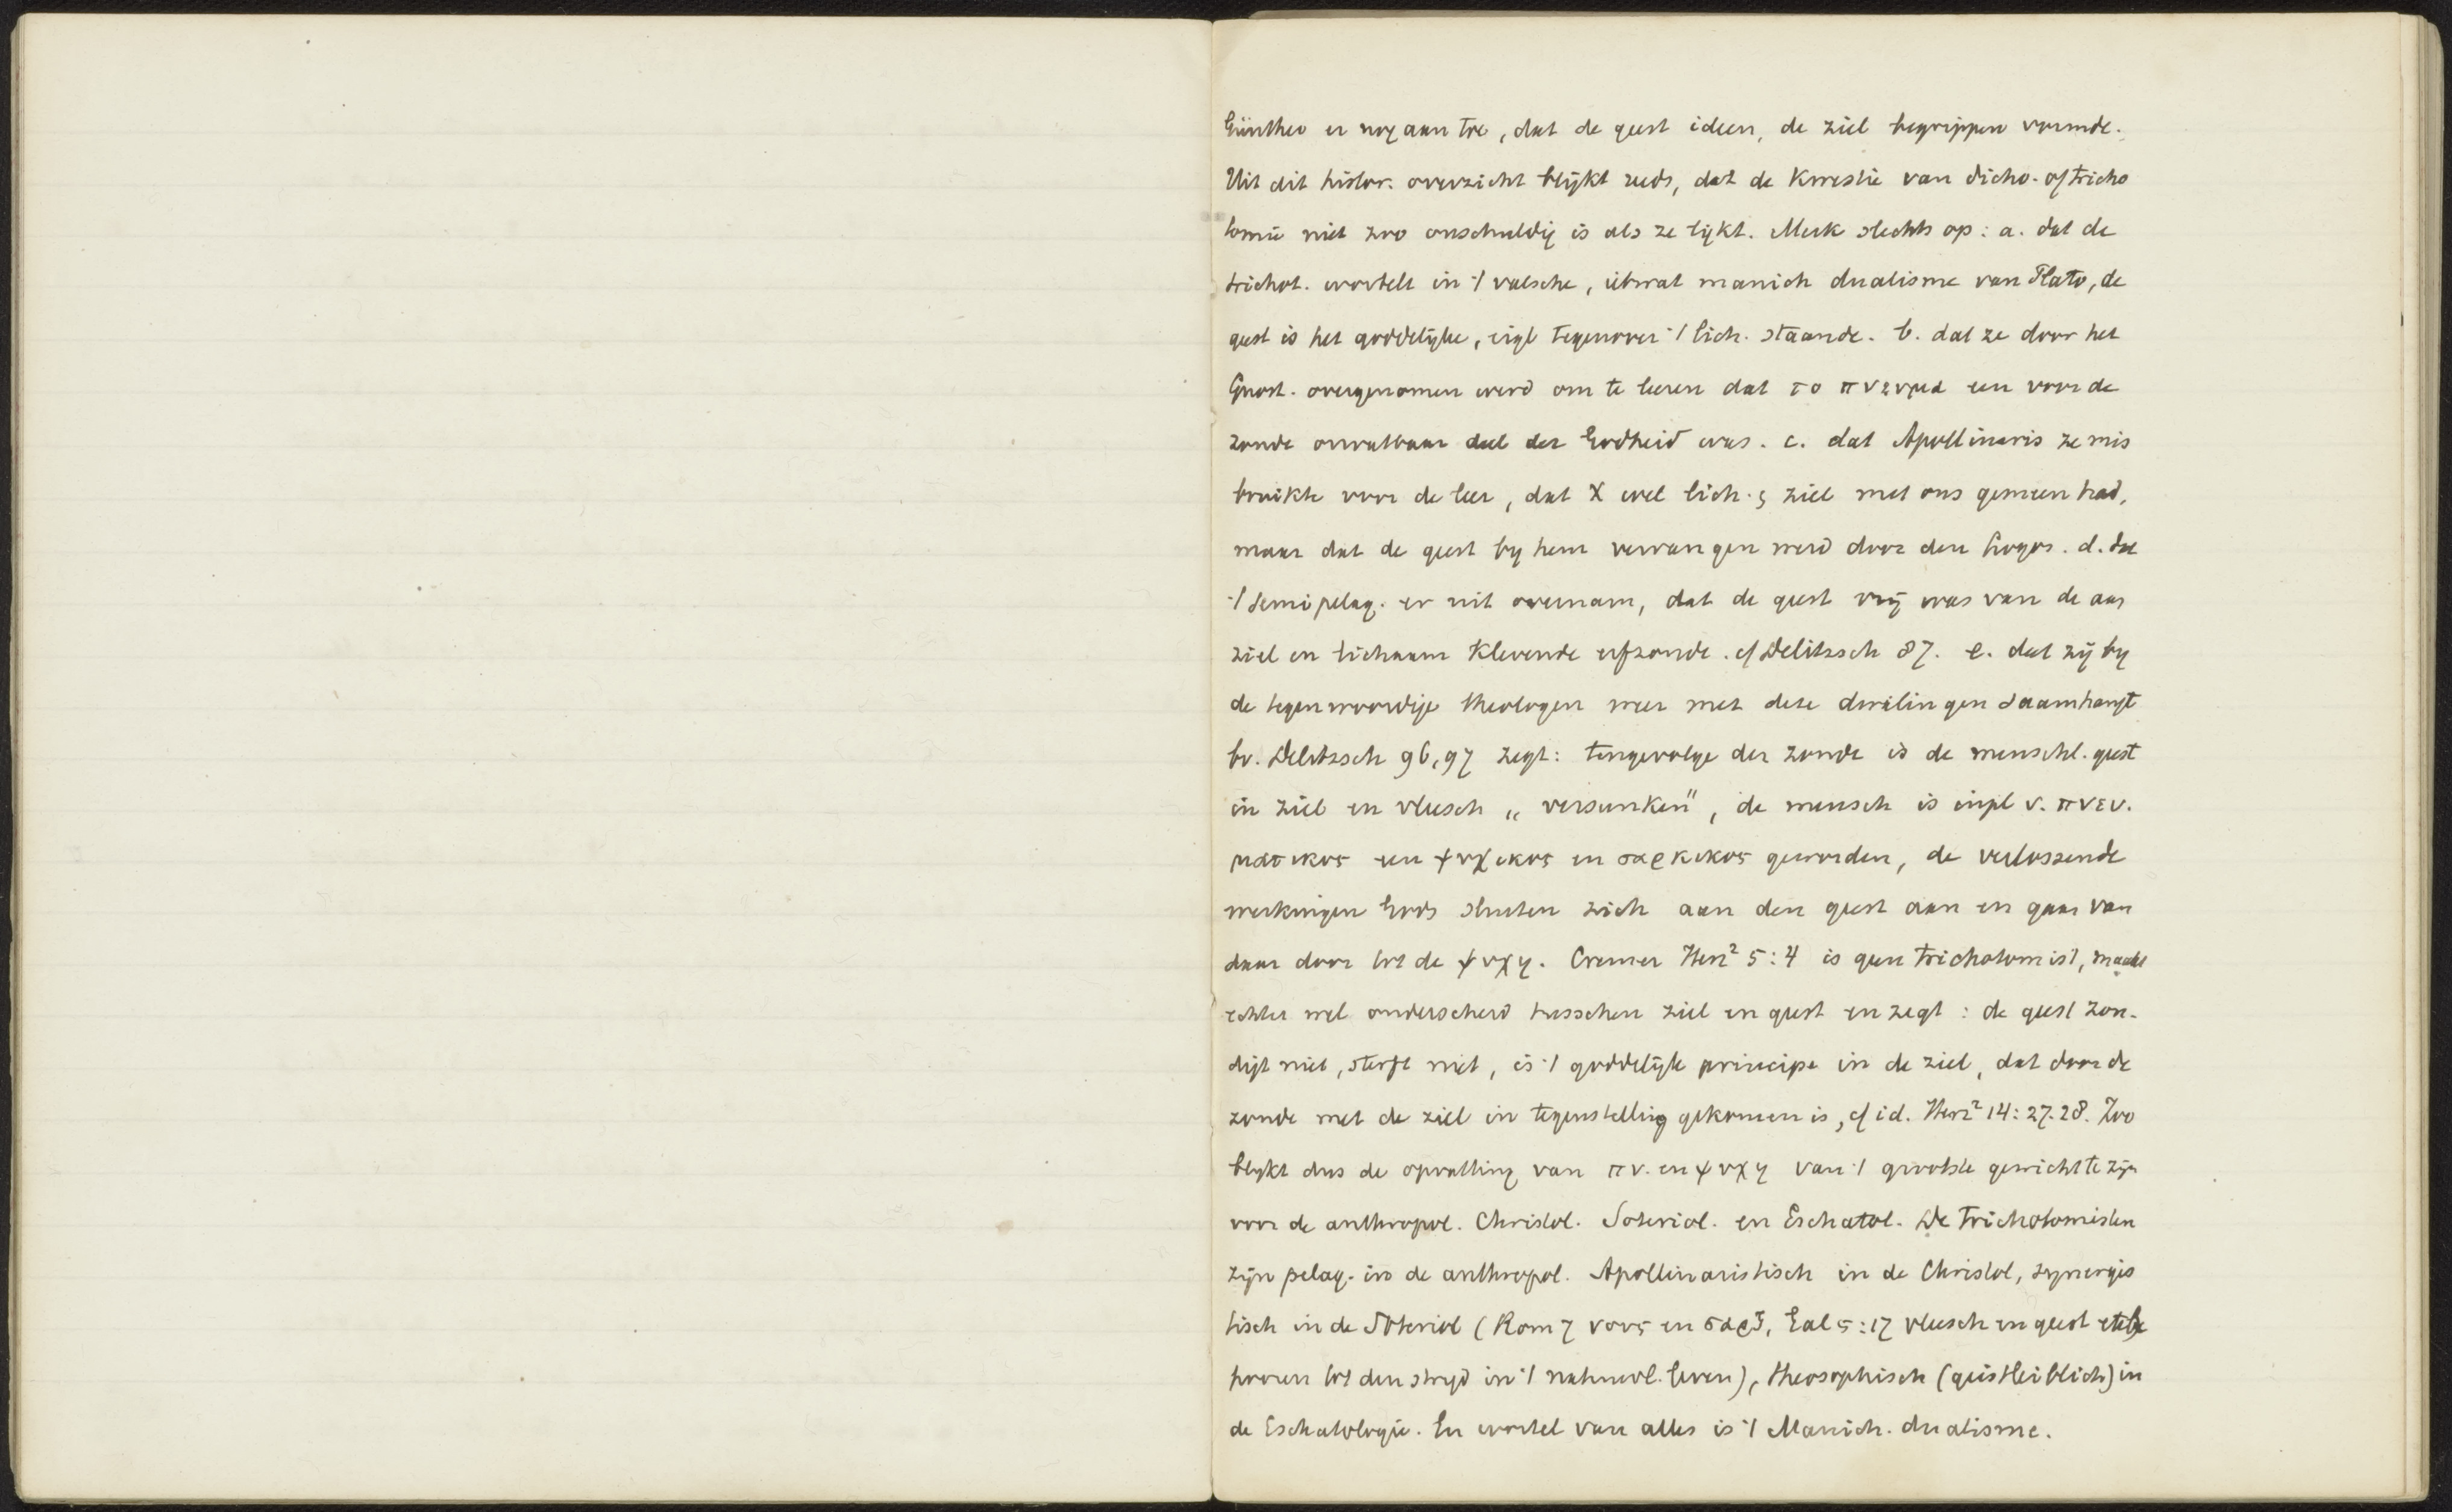 Günther er nog aan toe, dat de geest ideen, de ziel begrippen vormde.
Uit dit histor. overzicht blijkt reeds, dat de kwestie van dicho- of tricho
tomie niet zoo onschuldig is als ze lykt. Merk slechts op: a. dat de
trichot. wortelt in 't valsche, ietwat manich dualisme van Plato, de
geest is het goddelijke, eigl tegenover 't lich. staande. b. dat ze door het
Gnost. overgenomen werd om te leeren dat το πνευμα een voor de
zonde onvatbaar deel der Godheid was. c. dat Apollinaris ze mis
bruikte voor de leer, dat X wel lich. & ziel met ons gemeen had,
maar dat de geest by hem vervangen werd door den Logos. d. dat
't semipelag. er uit overnam, dat de geest vrij was van de aan
ziel en lichaam klevende erfzonde. cf Delitzsch 87. e. dat zij by
de tegenwoordige theologen weer met deze dwalingen saamhangt
bv. Delitzsch 96, 97 zegt: tengevolge der zonde is de menschl. geest
in ziel en vleesch „versunken", de mensch is inpl v. πνευ.
ματικος een ψυχικος en σαρκικος geworden, de verlossende
werkingen Gods sluiten zich aan den geest aan en gaan van
daar door tot de ψυχη. Cremer Herz² 5:4 is geen trichotomist, maakt
echter wel onderscheid tusschen ziel en geest en zegt: de geest zon-
digt niet, sterft niet, is 't goddelijk principe in de ziel, dat door de
zonde met de ziel in tegenstelling gekomen is, cf id. Herz² 14:27.28. Zoo
blykt dus de opvatting van πν. en ψυχη van 't grootste gewicht te zijn
voor de anthropol. Christol. Soteriol. en Eschatol. De Trichotomisten
zijn pelag. in de anthropol. Apollinaristisch in de Christol, synergis
tisch in de Soteriol (Rom 7 νους en σαρξ, Gal 5:17 vleesch en geest etc be
hooren tot den stryd in 't natuurl. leven), theosophisch (geistleiblich) in
de Eschatologie. En wortel van alles is 't Manich. dualisme.